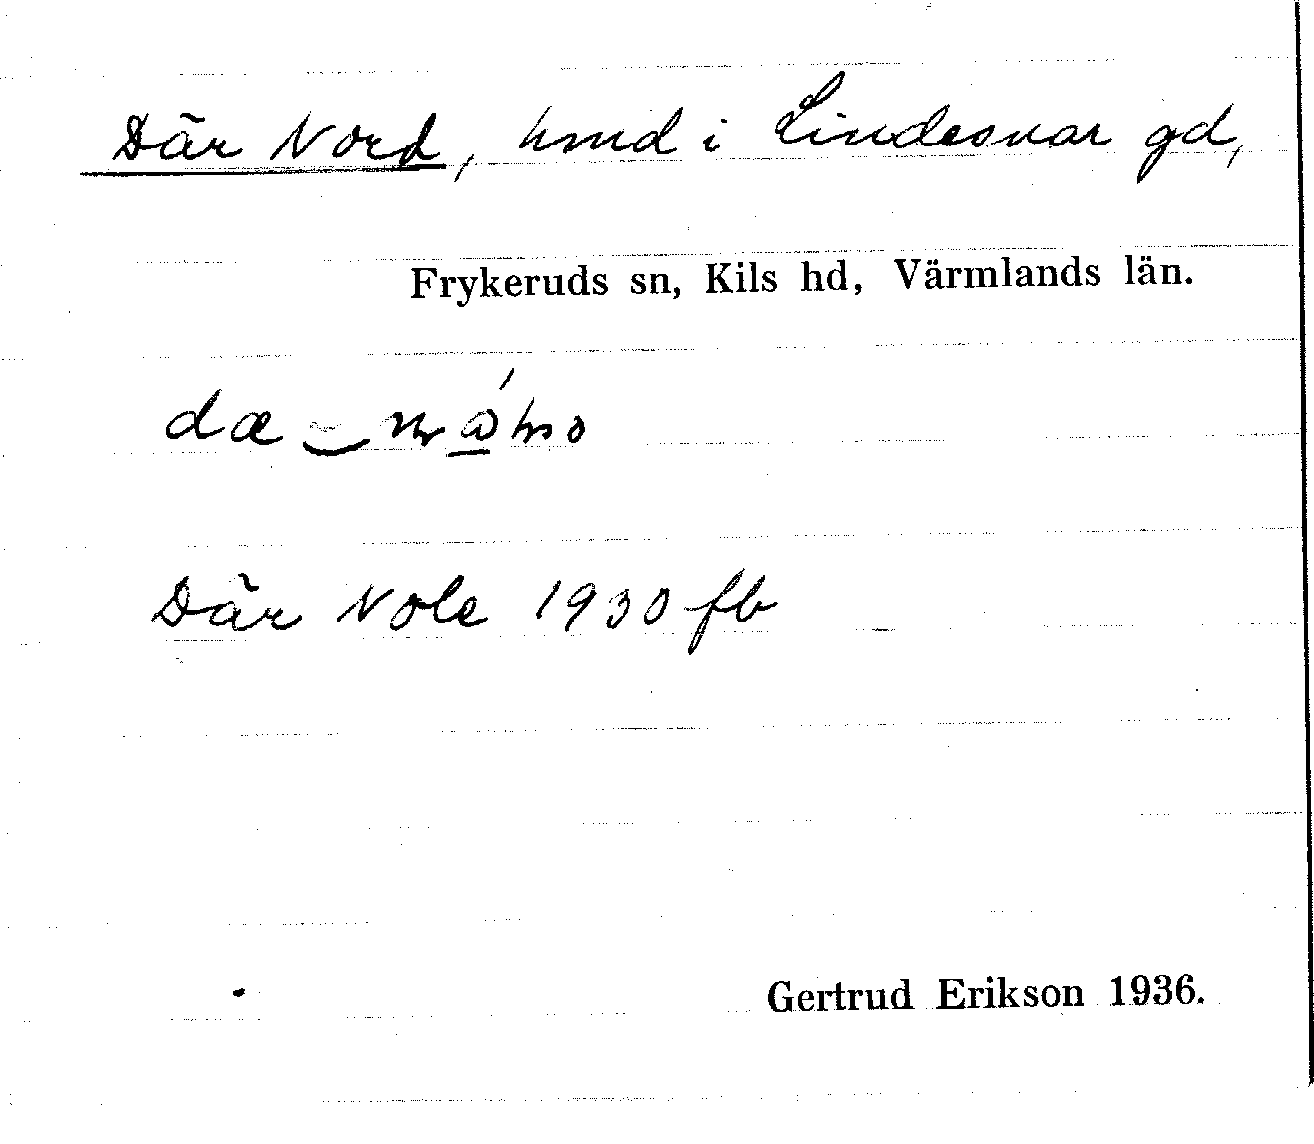 Där Nord, hmd i Lindesvar gd,
Frykeruds sn, Kils hd, Värmlands län.
Där Nole 1930 fb
Gertrud Erikson 1936.